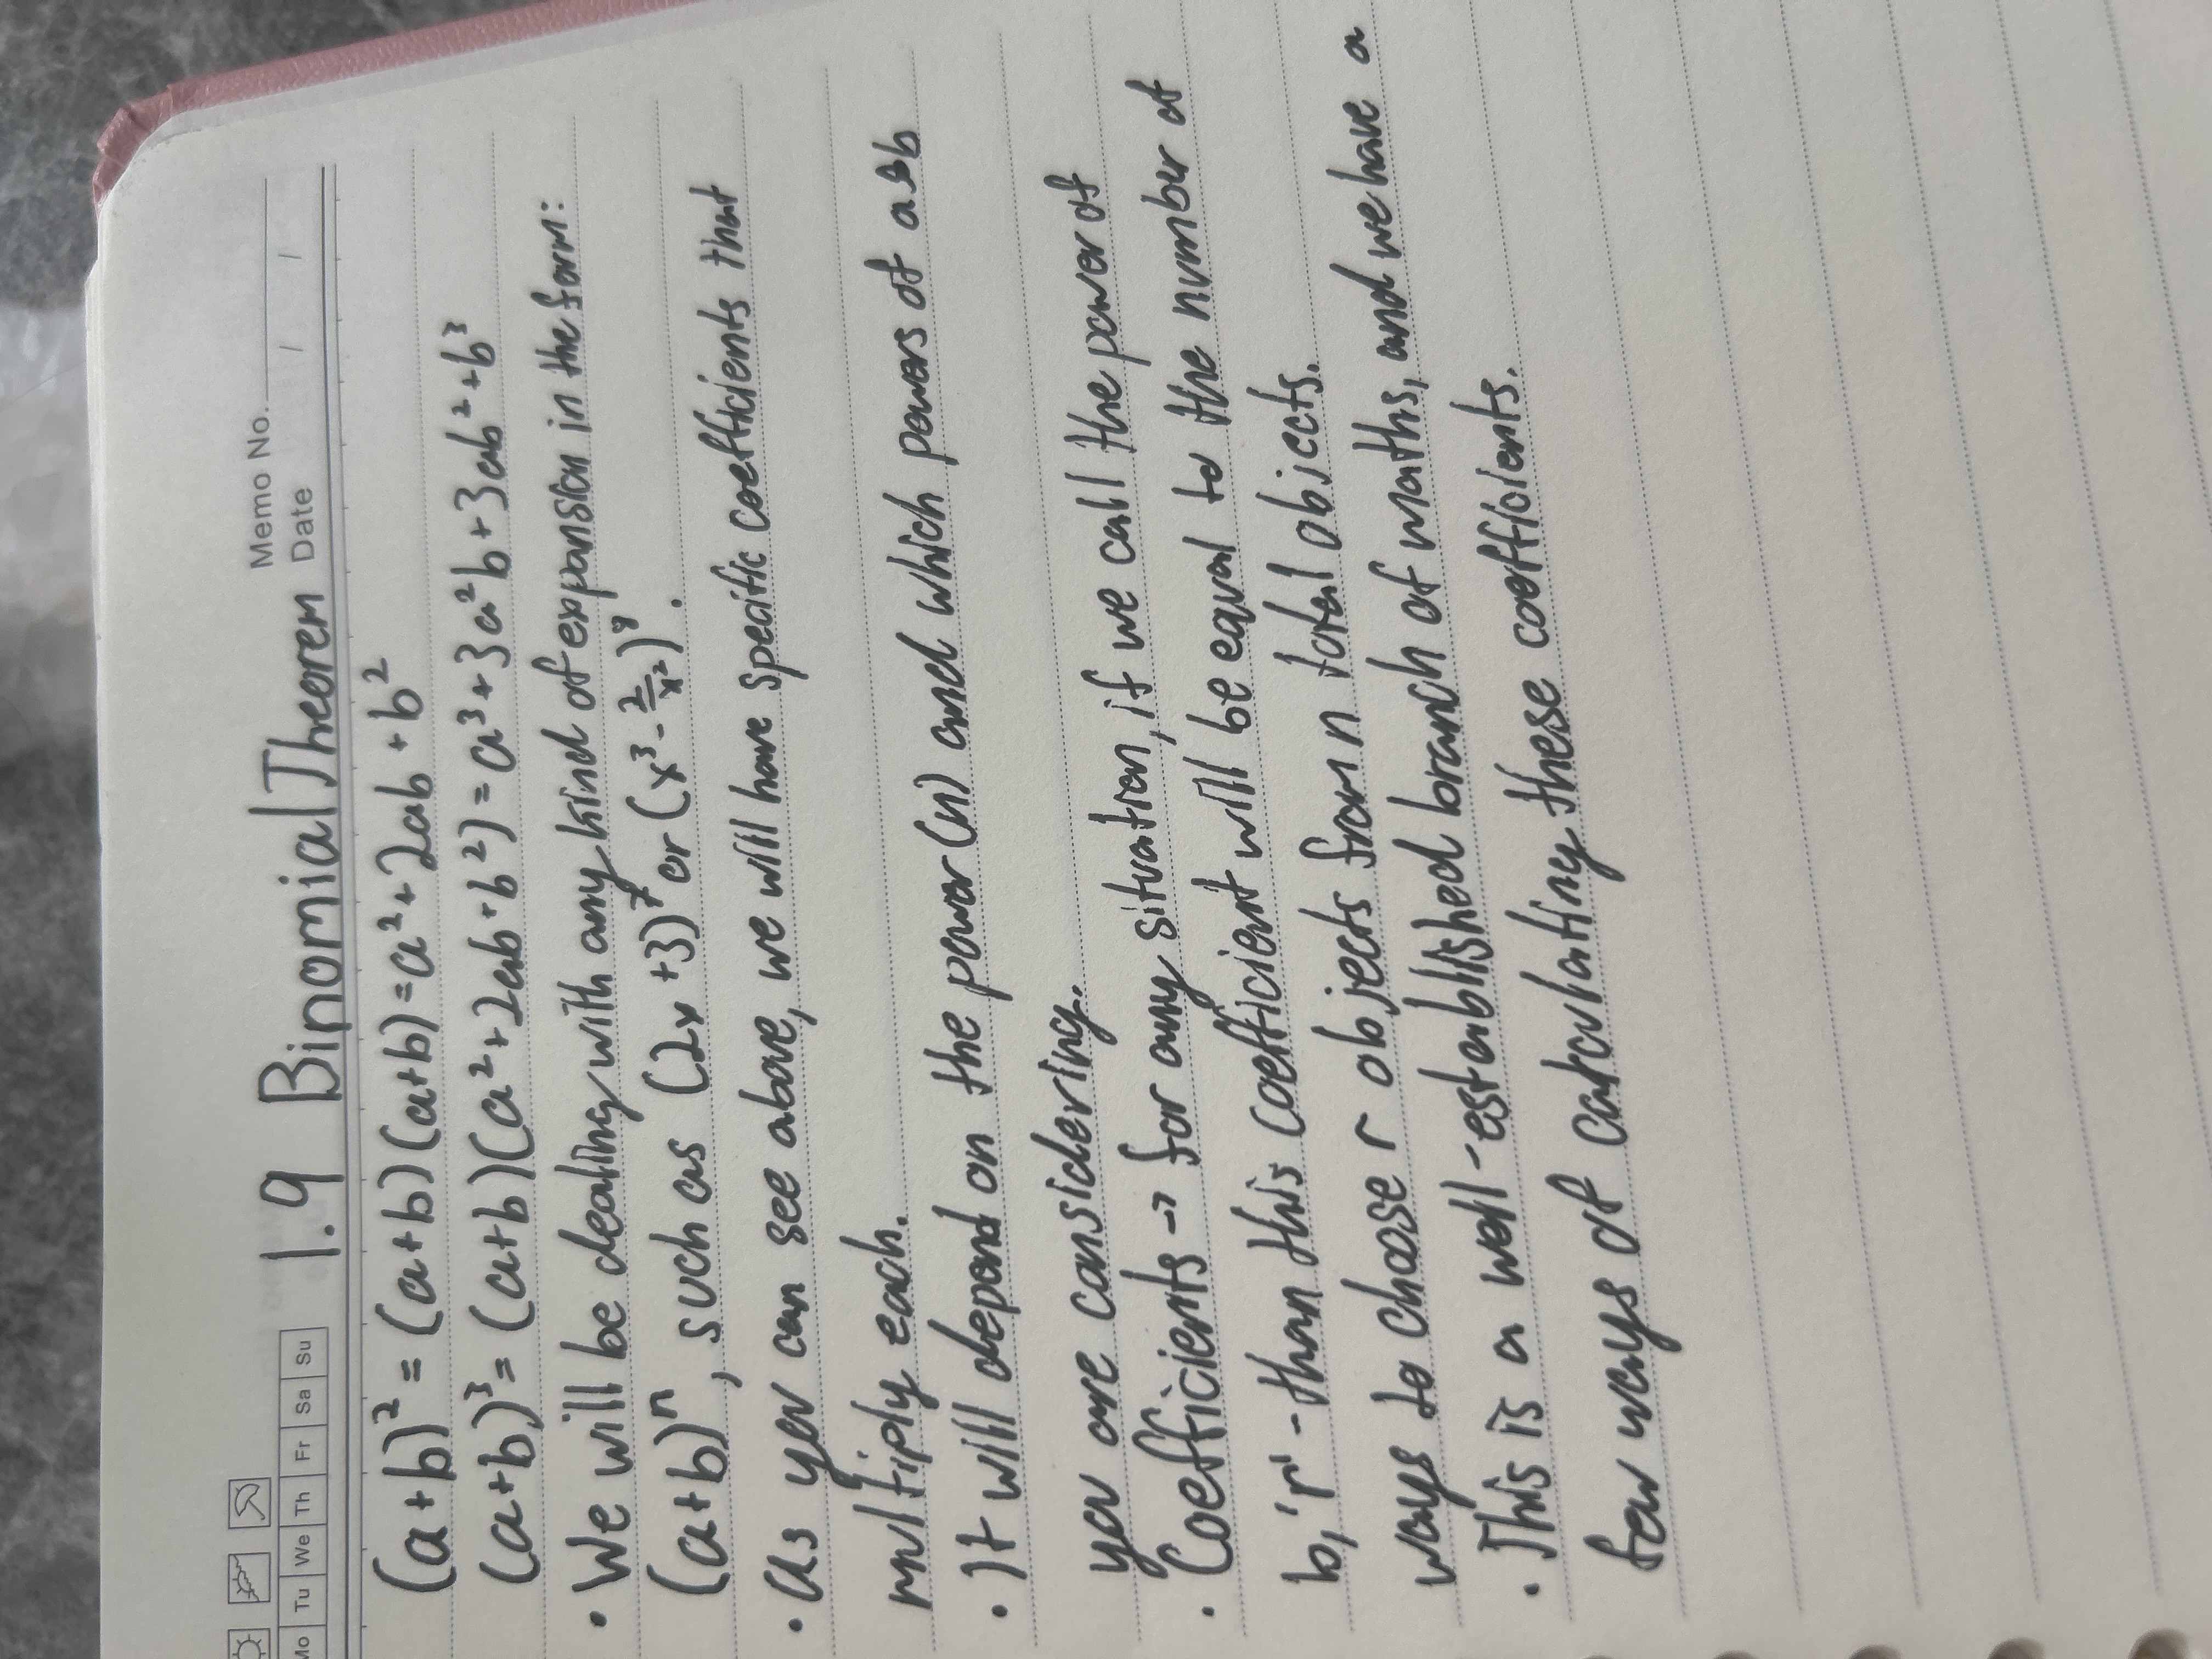 Memo No.
Mo Tu We Th Fr Sa Su
Date / /
1.9 Binomial Theorem
(a+b)² = (a+b)(a+b) = a² + 2ab + b²
(a+b)³ = (a+b)(a²+2ab+b²) = a³ + 3a²b + 3ab² + b³
• We will be dealing with any kind of expansion in the form:
(a+b)ⁿ, such as (2x+3)⁷ or (x³ - 2/x²)⁹.
• As you can see above, we will have specific coefficients that
multiply each.
• It will depend on the power (n) and which powers of a & b
you are considering.
• Coefficients → for any situation, if we call the power of
b, 'r' - than this coefficient will be equal to the number of
ways to choose r objects from n total objects.
• This is a well-established branch of maths, and we have a
few ways of calculating these coefficients.